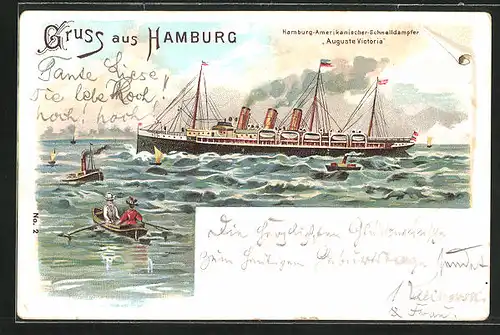 Gruss aus Hamburg
Hamburg-Amerikanischer-Schnelldampfer
„Auguste Victoria"
Tante Liese!
Sie lebe hoch,
hoch, hoch!
No. 2
Die herzlichsten Glückwünsche
zum heutigen Geburtstage sendet
& Frau.